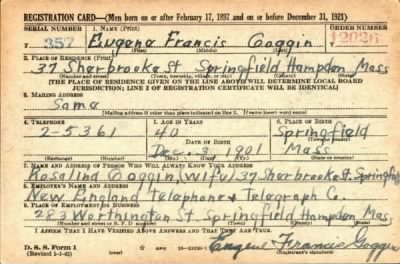 REGISTRATION CARD—(Men born on or after February 17, 1897 and on or before December 31, 1921)
SERIAL NUMBER 1. NAME (Print) ORDER NUMBER
T 357 Eugene Francis Goggin 12026
(First) (Middle) (Last)
2. PLACE OF RESIDENCE (Print)
37 Sherbrooke St Springfield Hampden Mass
(Number and street) (Town, township, village, or city) (County) (State)
[THE PLACE OF RESIDENCE GIVEN ON THE LINE ABOVE WILL DETERMINE LOCAL BOARD
JURISDICTION; LINE 2 OF REGISTRATION CERTIFICATE WILL BE IDENTICAL]
3. MAILING ADDRESS
Same
[Mailing address if other than place indicated on line 2. If same insert word same]
4. TELEPHONE 5. AGE IN YEARS 6. PLACE OF BIRTH
2-5361 40 Springfield
DATE OF BIRTH (Town or county)
Dec. 3 1901 Mass
(Exchange) (Number) (Mo.) (Day) (Yr.) (State or country)
7. NAME AND ADDRESS OF PERSON WHO WILL ALWAYS KNOW YOUR ADDRESS
Rosalind Goggin (wife) 37 Sherbrooke St. Springfield
8. EMPLOYER'S NAME AND ADDRESS
New England Telephone & Telegraph Co.
9. PLACE OF EMPLOYMENT OR BUSINESS
283 Worthington St. Springfield Hampden Mass
(Number and street or R. F. D. number) (Town) (County) (State)
I AFFIRM THAT I HAVE VERIFIED ABOVE ANSWERS AND THAT THEY ARE TRUE.
D. S. S. Form 1 GPO
(Revised 1-1-42) Eugene Francis Goggin